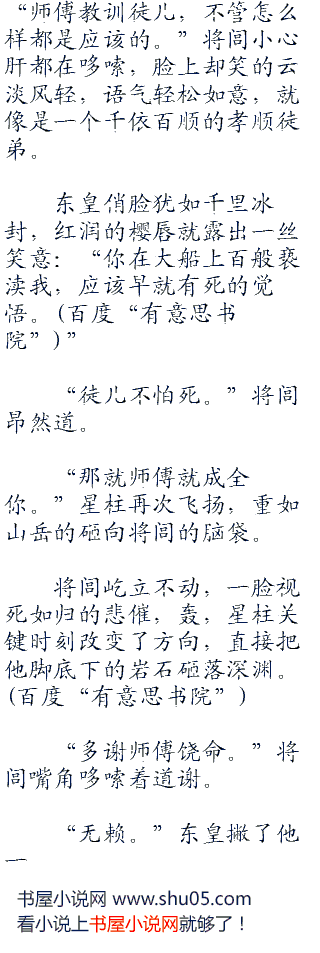 “师傅教训徒儿，不管怎么
样都是应该的。”将闾小心
肝都在哆嗦，脸上却笑的云
淡风轻，语气轻松如意，就
像是一个千依百顺的孝顺徒
弟。
东皇俏脸犹如千里冰
封，红润的樱唇就露出一丝
笑意：“你在大船上百般亵
渎我，应该早就有死的觉
悟。(百度“有意思书
院”)”
“徒儿不怕死。”将闾
昂然道。
“那就师傅就成全
你。”星柱再次飞扬，重如
山岳的砸向将闾的脑袋。
将闾屹立不动，一脸视
死如归的悲催，轰，星柱关
键时刻改变了方向，直接把
他脚底下的岩石砸落深渊。
(百度“有意思书院”)
“多谢师傅饶命。”将
闾嘴角哆嗦着道谢。
“无赖。”东皇撇了他
一
书屋小说网 www.shu05.com
看小说上书屋小说网就够了！